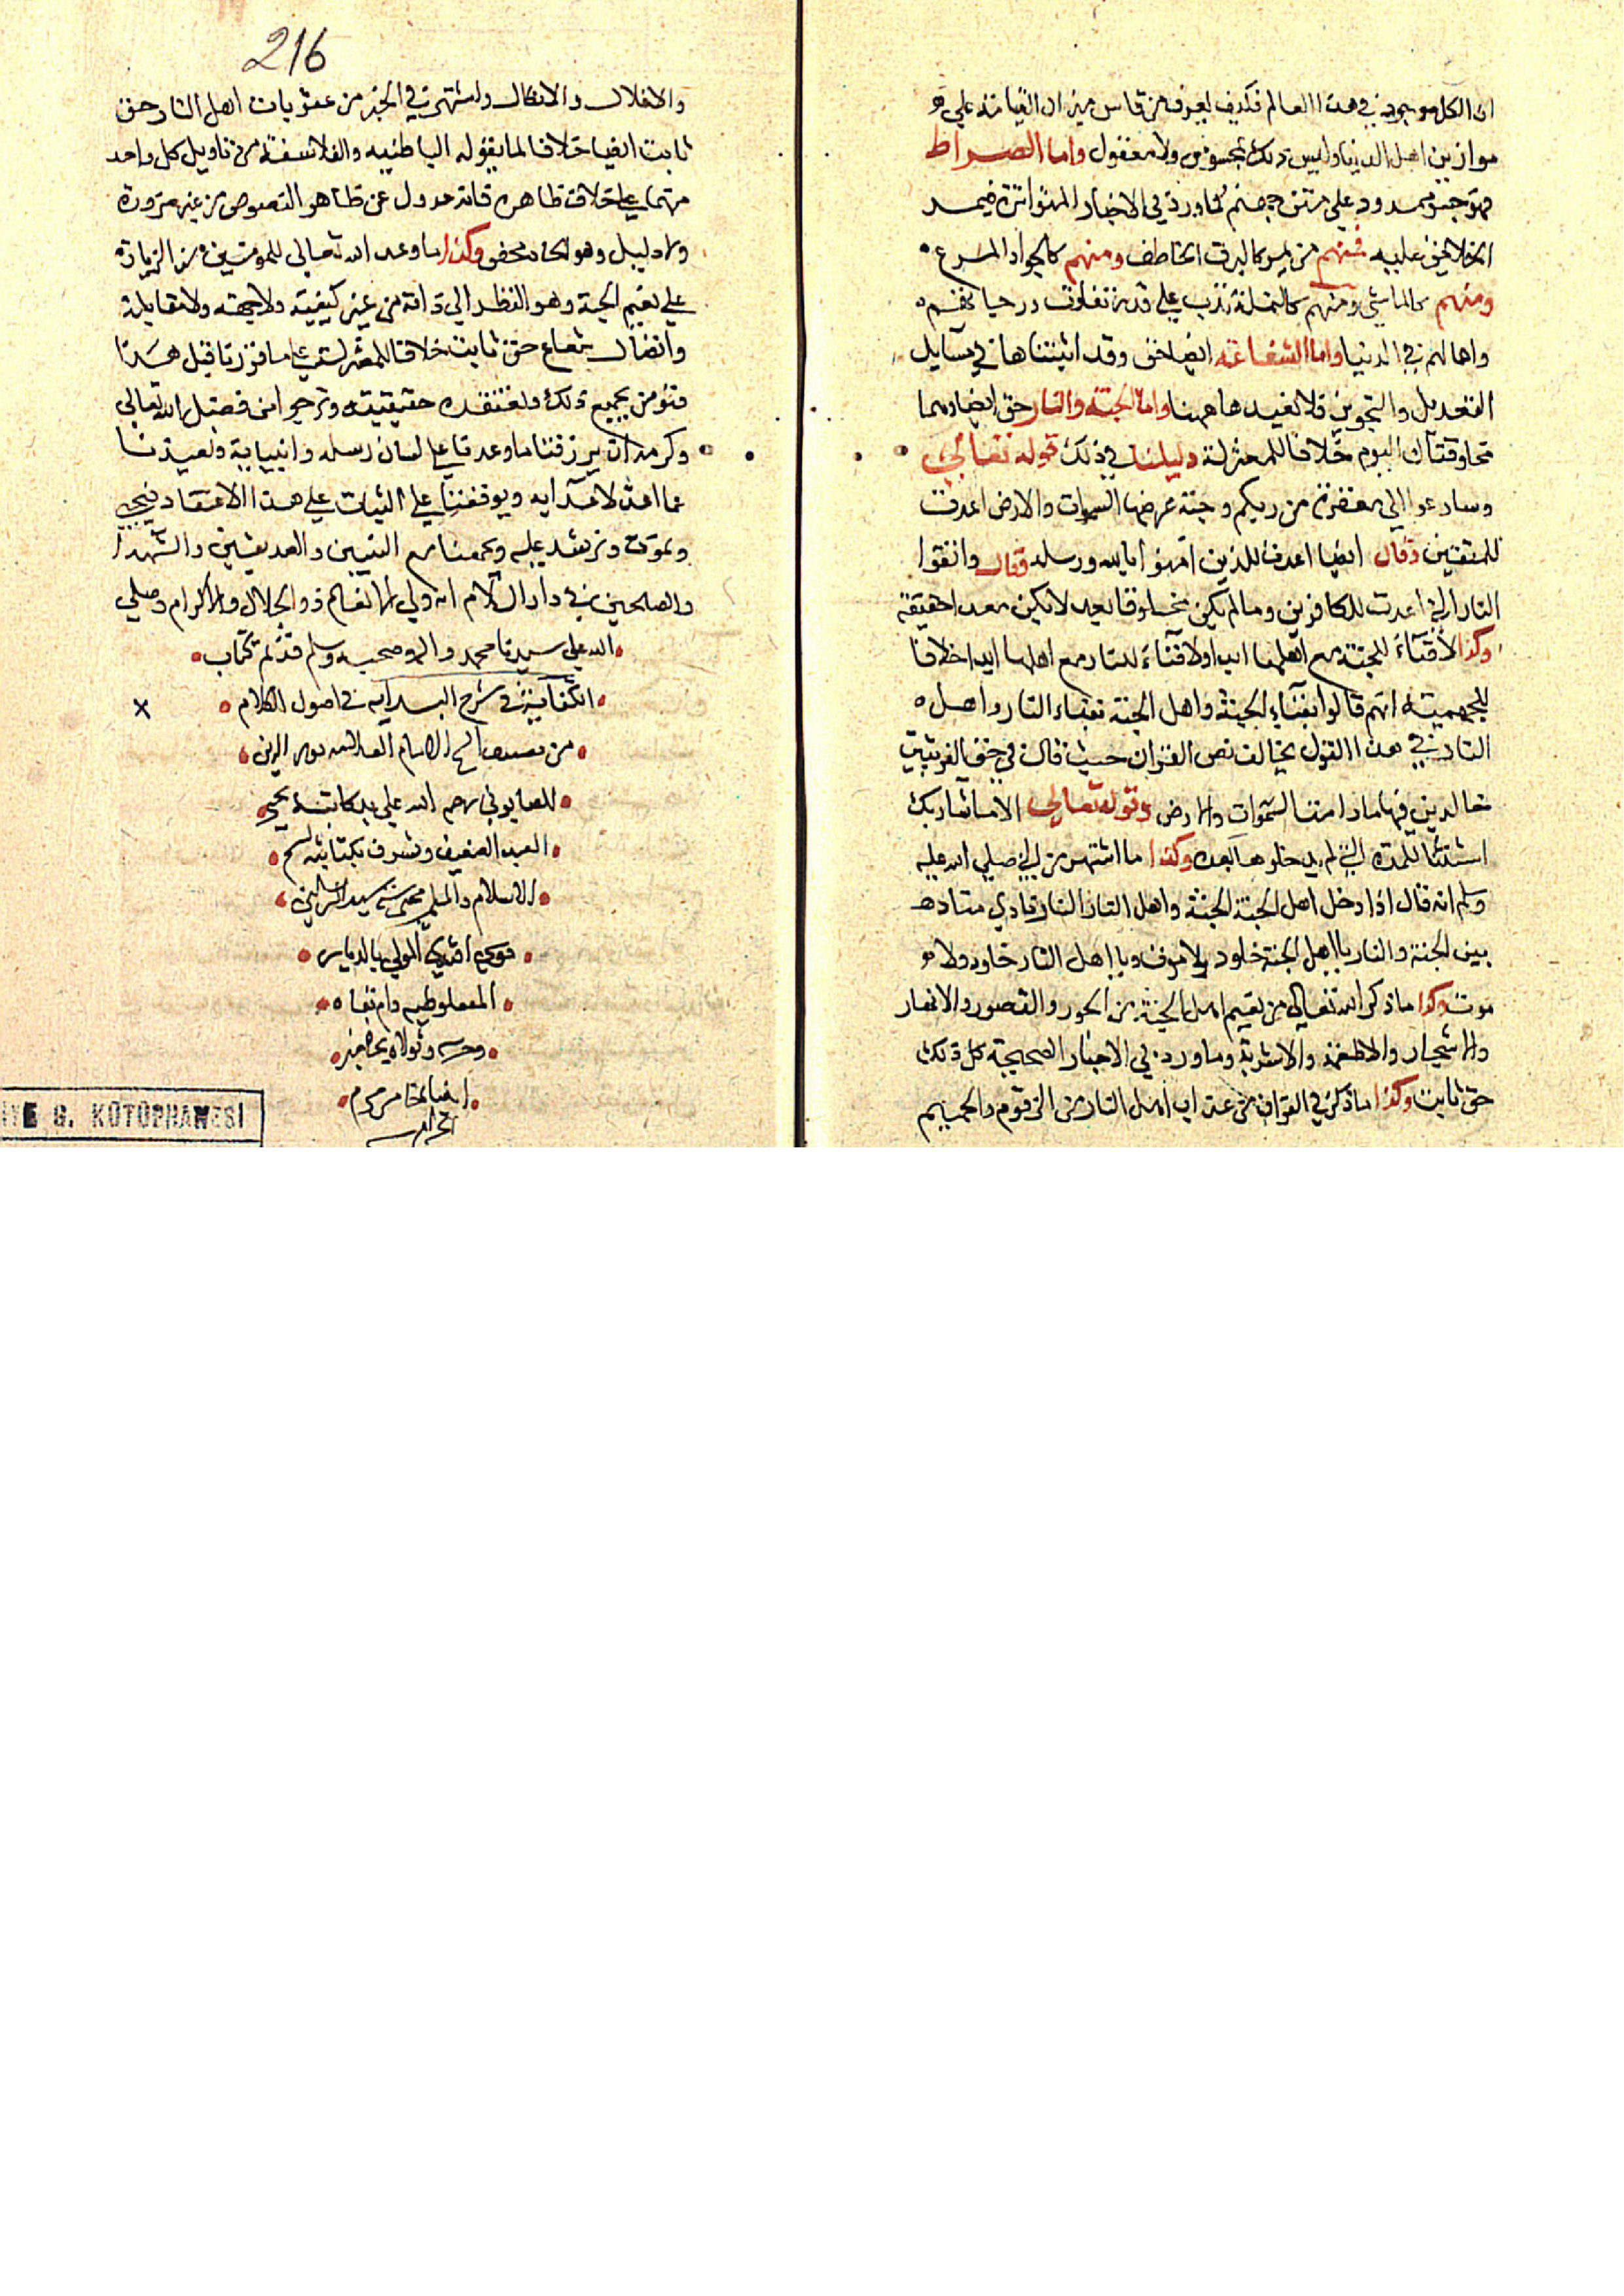 ان الكل موجود في هذا العالم فكيف يعرف من قاس ميزان القيامة علي
موازين اهل الدنيا وليس ذلك بمحسوس ولا معقول واما الصراط
فهو جسر ممدود علي متن جهنم كما ورد في الاخبار المتواترة فيمد
الخلايق عليه فمنهم من يمر كالبرق الخاطف ومنهم كالجواد المسرع
ومنهم كالماشي ومنهم كالنملة تدب علي قدر تفاوت درجاتهم
واعمالهم في الدنيا واما الشفاعة ايضا حق وقد اثبتناها في مسايل
التعديل والتجوير فلا نعيدها ههنا واما الجنة والنار حق ايضا وهما
مخلوقتان اليوم خلافا للمعتزلة دليلنا في ذلك قوله تعالي
وسارعوا الي مغفرة من ربكم وجنة عرضها السموات والارض اعدت
للمتقين وقال ايضا اعدت للذين امنوا بالله ورسله وقال واتقوا
النار التي اعدت للكافرين وما لم يكن مخلوقا بعد لا يكن معدا حقيقة
وكذا لا فناء للجنة مع اهلها ابدا ولا فناء للنار مع اهلها ابدا خلافا
للجهمية انهم قالوا بفناء الجنة واهل الجنة بفناء النار واهل
النار في هذا القول يخالف نص القران حيث قال في حق الفريقين
خالدين فيها ما دامت السموات والارض وقوله تعالي الا ما شاء ربك
استثنا للمدة التي لم يدخلوها بعد وكذا ما اشتهر من النبي صلي الله عليه
وسلم انه قال اذا دخل اهل الجنة الجنة واهل النار النار ينادي مناد
بين الجنة والنار يا اهل الجنة خلود ولا موت ويا اهل النار خلود ولا مو
موت وكذا ما ذكر الله تعالي من نعيم اهل الجنة من الحور والقصور والانهار
والاشجار والاطعمة والاشربة وما ورد في الاخبار الصحيحة كل ذلك
حق ثابت وكذا ما ذكر في القران من عذاب اهل النار من الزقوم والحميم
216
والاغلال والانكال واشتهر في الخبر من عقوبات اهل النار حق
ثابت ايضا خلافا لما يقوله الباطنيه والفلاسفة من تاويل كل واحد
منهما علي خلاف ظاهره فانه عدول عن ظاهر النصوص من غير ضرورة
ولا دليل وهو الحاد محض وكذا ما وعد الله تعالي للمومنين من الزيادة
علي نعيم الجنة وهو النظر الي ذاته من غير كيفية ولا جهة ولا مقابلة
واتصال شعاع حق ثابت خلافا للمعتزلة علي ما قررنا قبل هذا
فنومن بجميع ذلك ونعتقده حقيقيته ونرجو من فضل الله تعالي
وكرمه ان يرزقنا ما وعدنا علي لسان رسله وانبيايه ويعيذنا
عما اعد لاعدايه ويوفقنا علي الثبات علي هذا الاعتقاد فنحيي
ونموت ونبعث عليه ويجمعنا مع النبيين والصديقين والشهدا
والصلحين في دار السلام انه ولي الانعام ذو الجلال والاكرام وصلي
الله علي سيدنا محمد واله وصحبه وسلم قد تم كتاب
الكفاية في شرح البدايه في اصول الكلام
من تصنيف الشيخ الامام العلامه نور الدين
الصابوني رحمه الله علي يد كاتبه يحيي
العبد الضعيف وتشرف بكتابته
الاسلام والمسلمين
افندي المولي بالديار
دام بقاه
وحرسه وتولاه